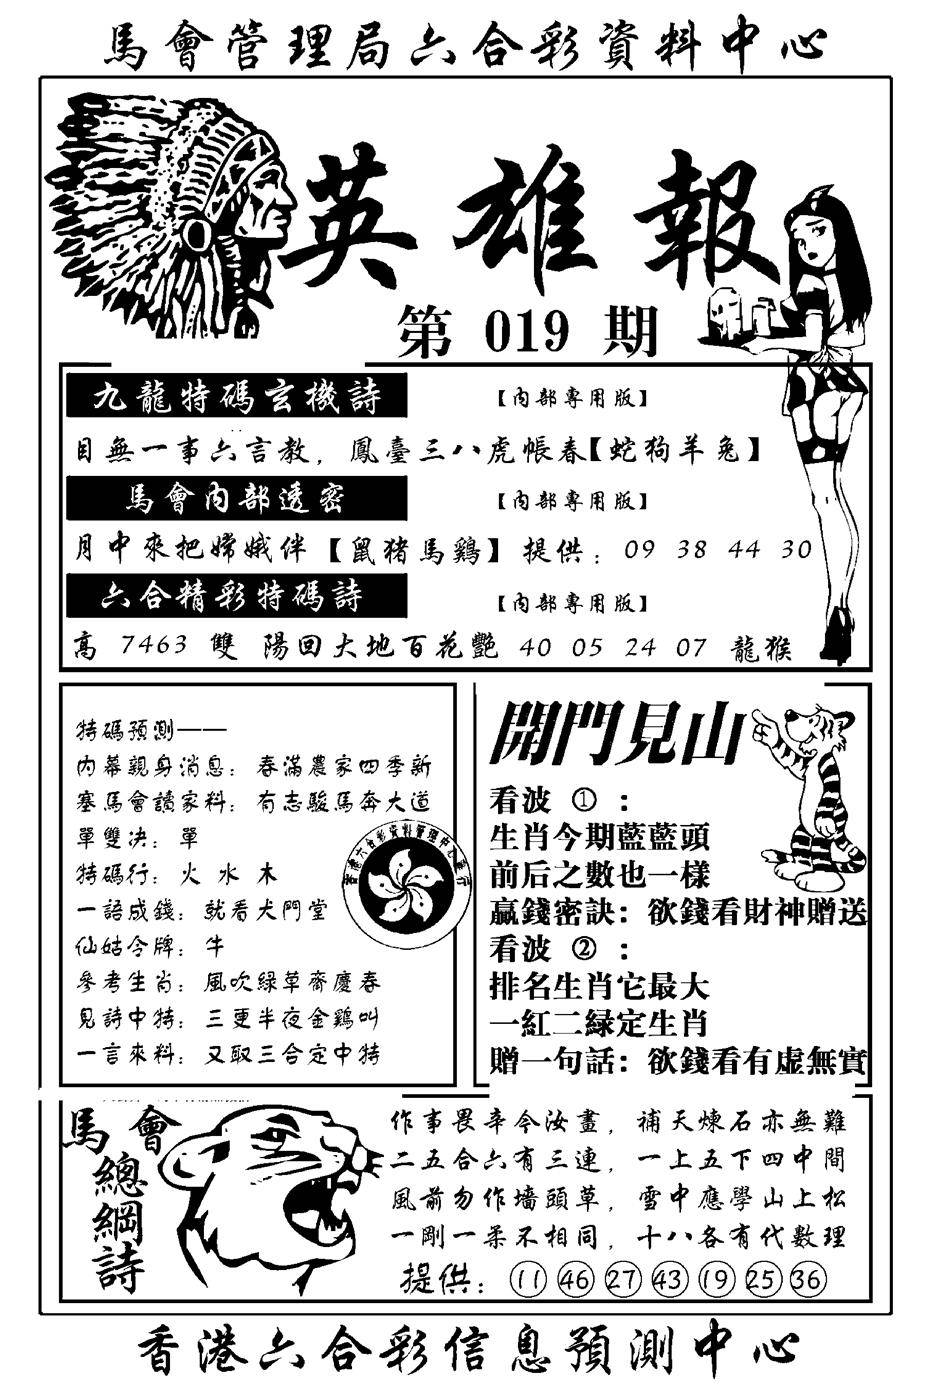 馬會管理局六合彩資料中心
英雄報
第 019 期
九龍特碼玄機詩 【內部專用版】
目無一事六言教，鳳臺三八虎帳春【蛇狗羊兔】
馬會內部透密 【內部專用版】
月中來把嫦娥伴【鼠猪馬鷄】提供：09 38 44 30
六合精彩特碼詩 【內部專用版】
高 7463 雙 陽回大地百花艷 40 05 24 07 龍猴
特碼預測——
內幕親身消息：春滿農家四季新
塞馬會讀家料：有志駿馬奔大道
單雙决：單
特碼行：火 水 木
一語成錢：就看犬門堂
仙姑令牌：牛
參考生肖：風吹緑草齊慶春
見詩中特：三更半夜金鷄叫
一言來料：又取三合定中特
香港六合彩資料管理中心發行
開門見山
看波 ①：
生肖今期藍藍頭
前后之數也一樣
赢錢密訣：欲錢看財神贈送
看波 ②：
排名生肖它最大
一紅二緑定生肖
贈一句話：欲錢看有虛無實
馬會
總綱詩
作事畏辛今汝畫，補天煉石亦無難
二五合六有三連，一上五下四中間
風前勿作墻頭草，雪中應學山上松
一剛一柔不相同，十八各有代數理
提供：⑪ ㊻ ㉗ ㊸ ⑲ ㉕ ㊱
香港六合彩信息預測中心